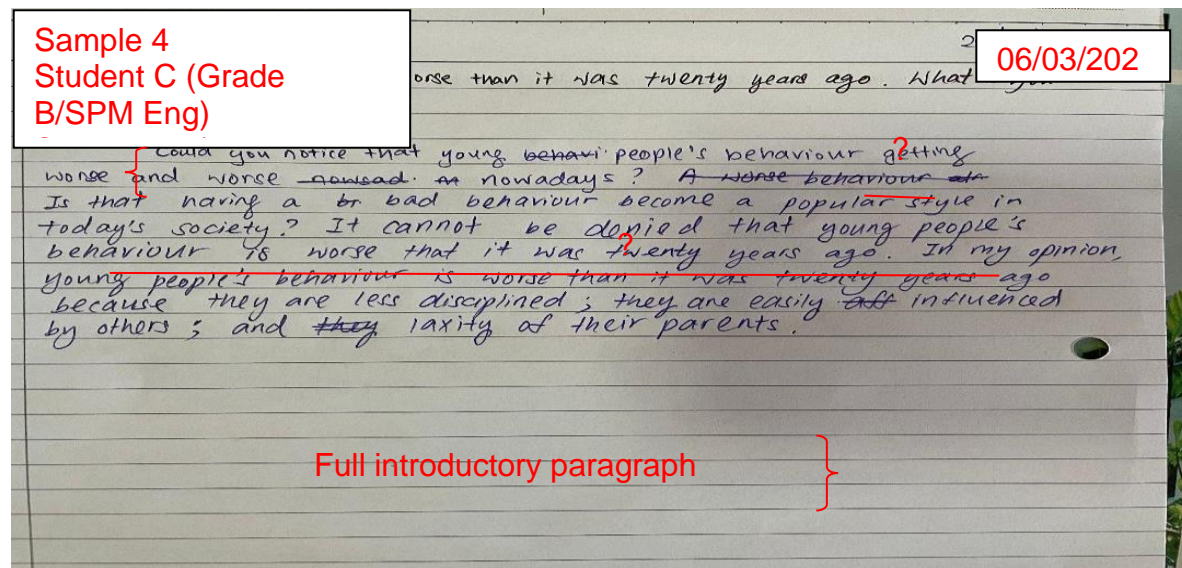 Sample 4
Student C (Grade
B/SPM Eng)
06/03/202
orse than it was twenty years ago. What
Could you notice that young behavi people's behaviour getting
worse and worse nowsad. nowadays? A worse behaviour
Is that having a br bad behaviour become a popular style in
today's society? It cannot be denied that young people's
behaviour is worse that it was twenty years ago. In my opinion,
young people's behaviour is worse than it was twenty years ago
because they are less disciplined; they are easily aff influenced
by others; and they laxity of their parents.
Full introductory paragraph